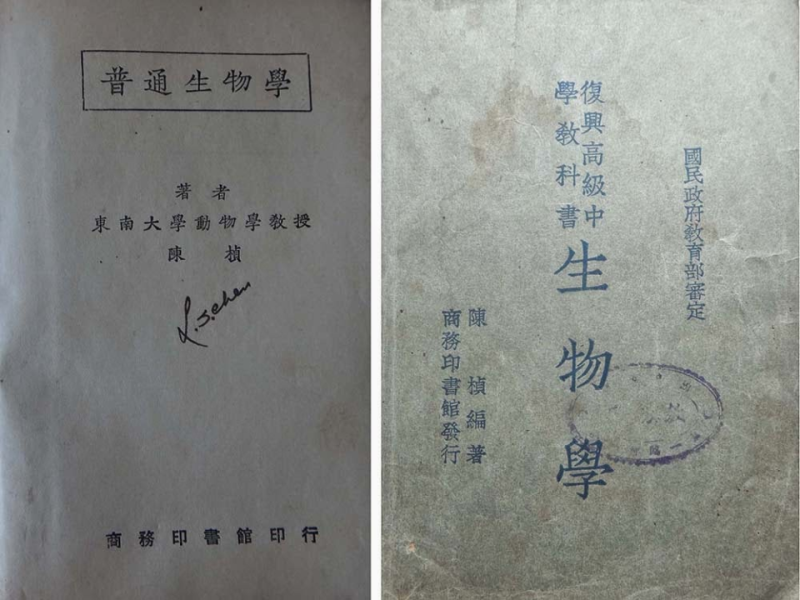 普通生物學
著者
東南大學動物學教授
陳楨
L.S.chen
商務印書館印行
國民政府教育部審定
復興高級中
學教科書
生物學
陳楨編著
商務印書館發行